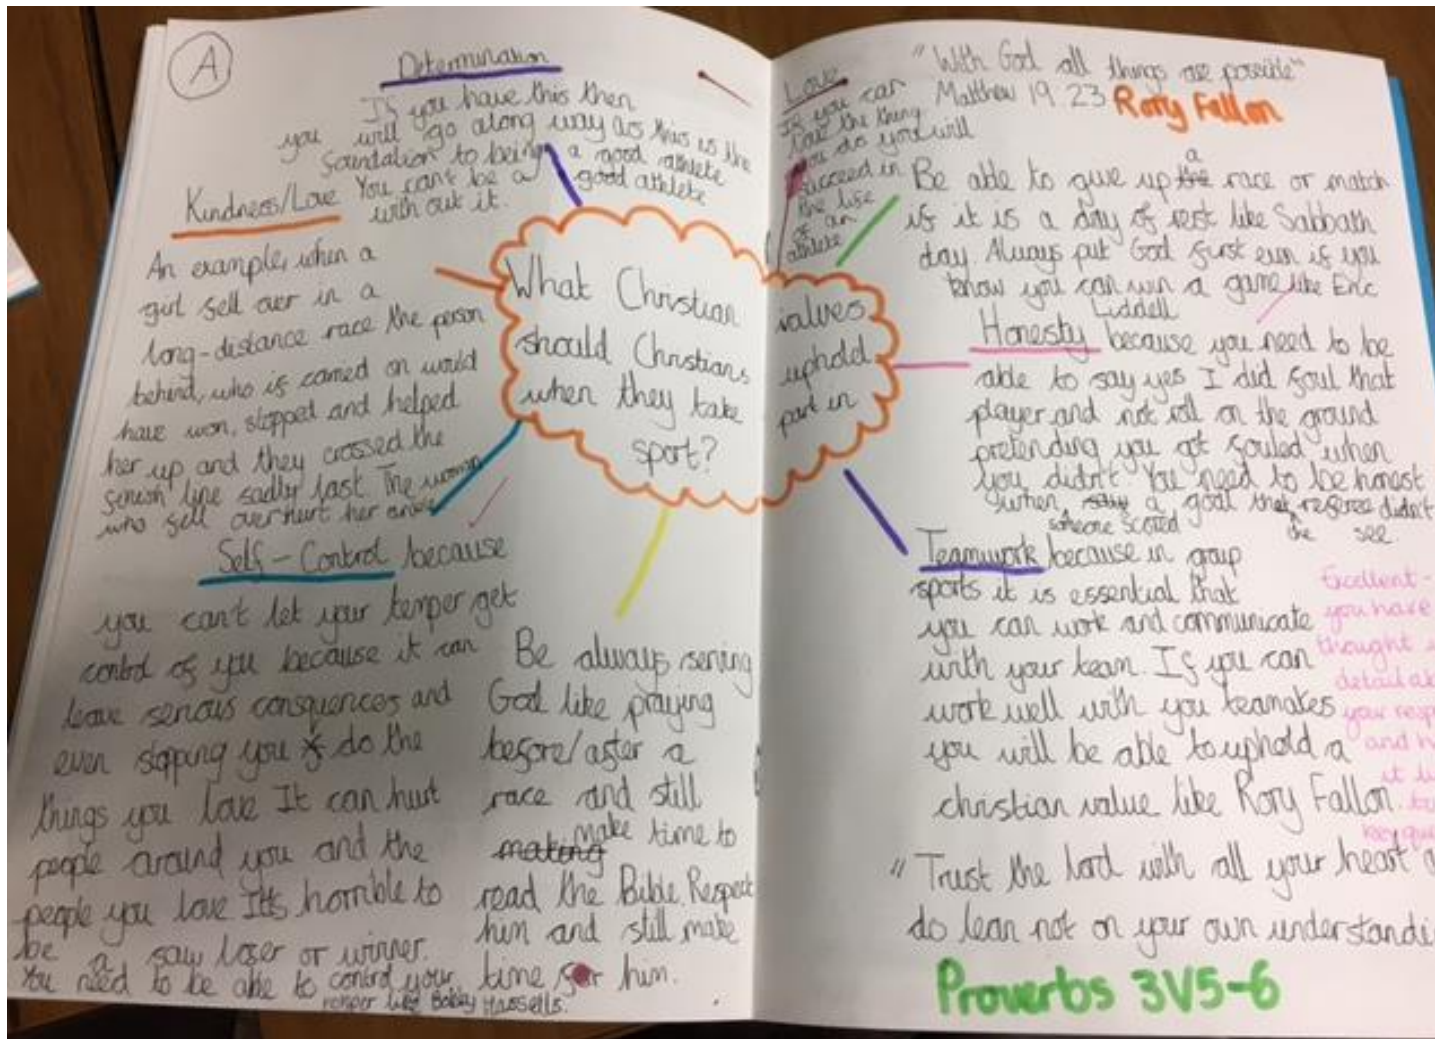 A
Determination
If you have this then
you will go along way as this is the
foundation to being a good athlete
You can't be a good athlete
with out it.
Kindness/Love
An example, when a
girl fell over in a
long-distance race the person
behind, who is carried on would
have won, stopped and helped
her up and they crossed the
finish line sadly last The woman
who fell over hurt her
Self-Control because
you can't let your temper get
control of you because it can
leave serious consquences and
even stopping you do the
things you love It can hurt
people around you and the
people you love It's horrible to
be a saw loser or winner.
You need to be able to control your
like Bobby Hassells.
What Christian values
should Christians uphold
when they take part in
sport?
Be always serving
God like praying
before/after a
race and still
making make time to
read the Bible. Respect
him and still make
time for him.
Love
If you can
love the thing
you do you will
succeed in
the life
of an
athlete
"With God all things are possible"
Matthew 19. 23 Rory Fallon
Be able to give up the a race or match
if it is a day of rest like Sabbath
day. Always put God first even if you
know you can win a game like Eric
Liddell
Honesty because you need to be
able to say yes I did foul that
player and not roll on the ground
pretending you got fouled when
you didn't You need to be honest
when someone scored a goal the referee didn't
see
Teamwork because in group
sports it is essential that
you can work and communicate
with your team. If you can
work well with you teamates
you will be able to uphold a
christian value like Rory Fallon.
Excellent -
you have
thought
detail
your
and
it
"Trust the lord with all your heart
do lean not on your own
Proverbs 3V5-6